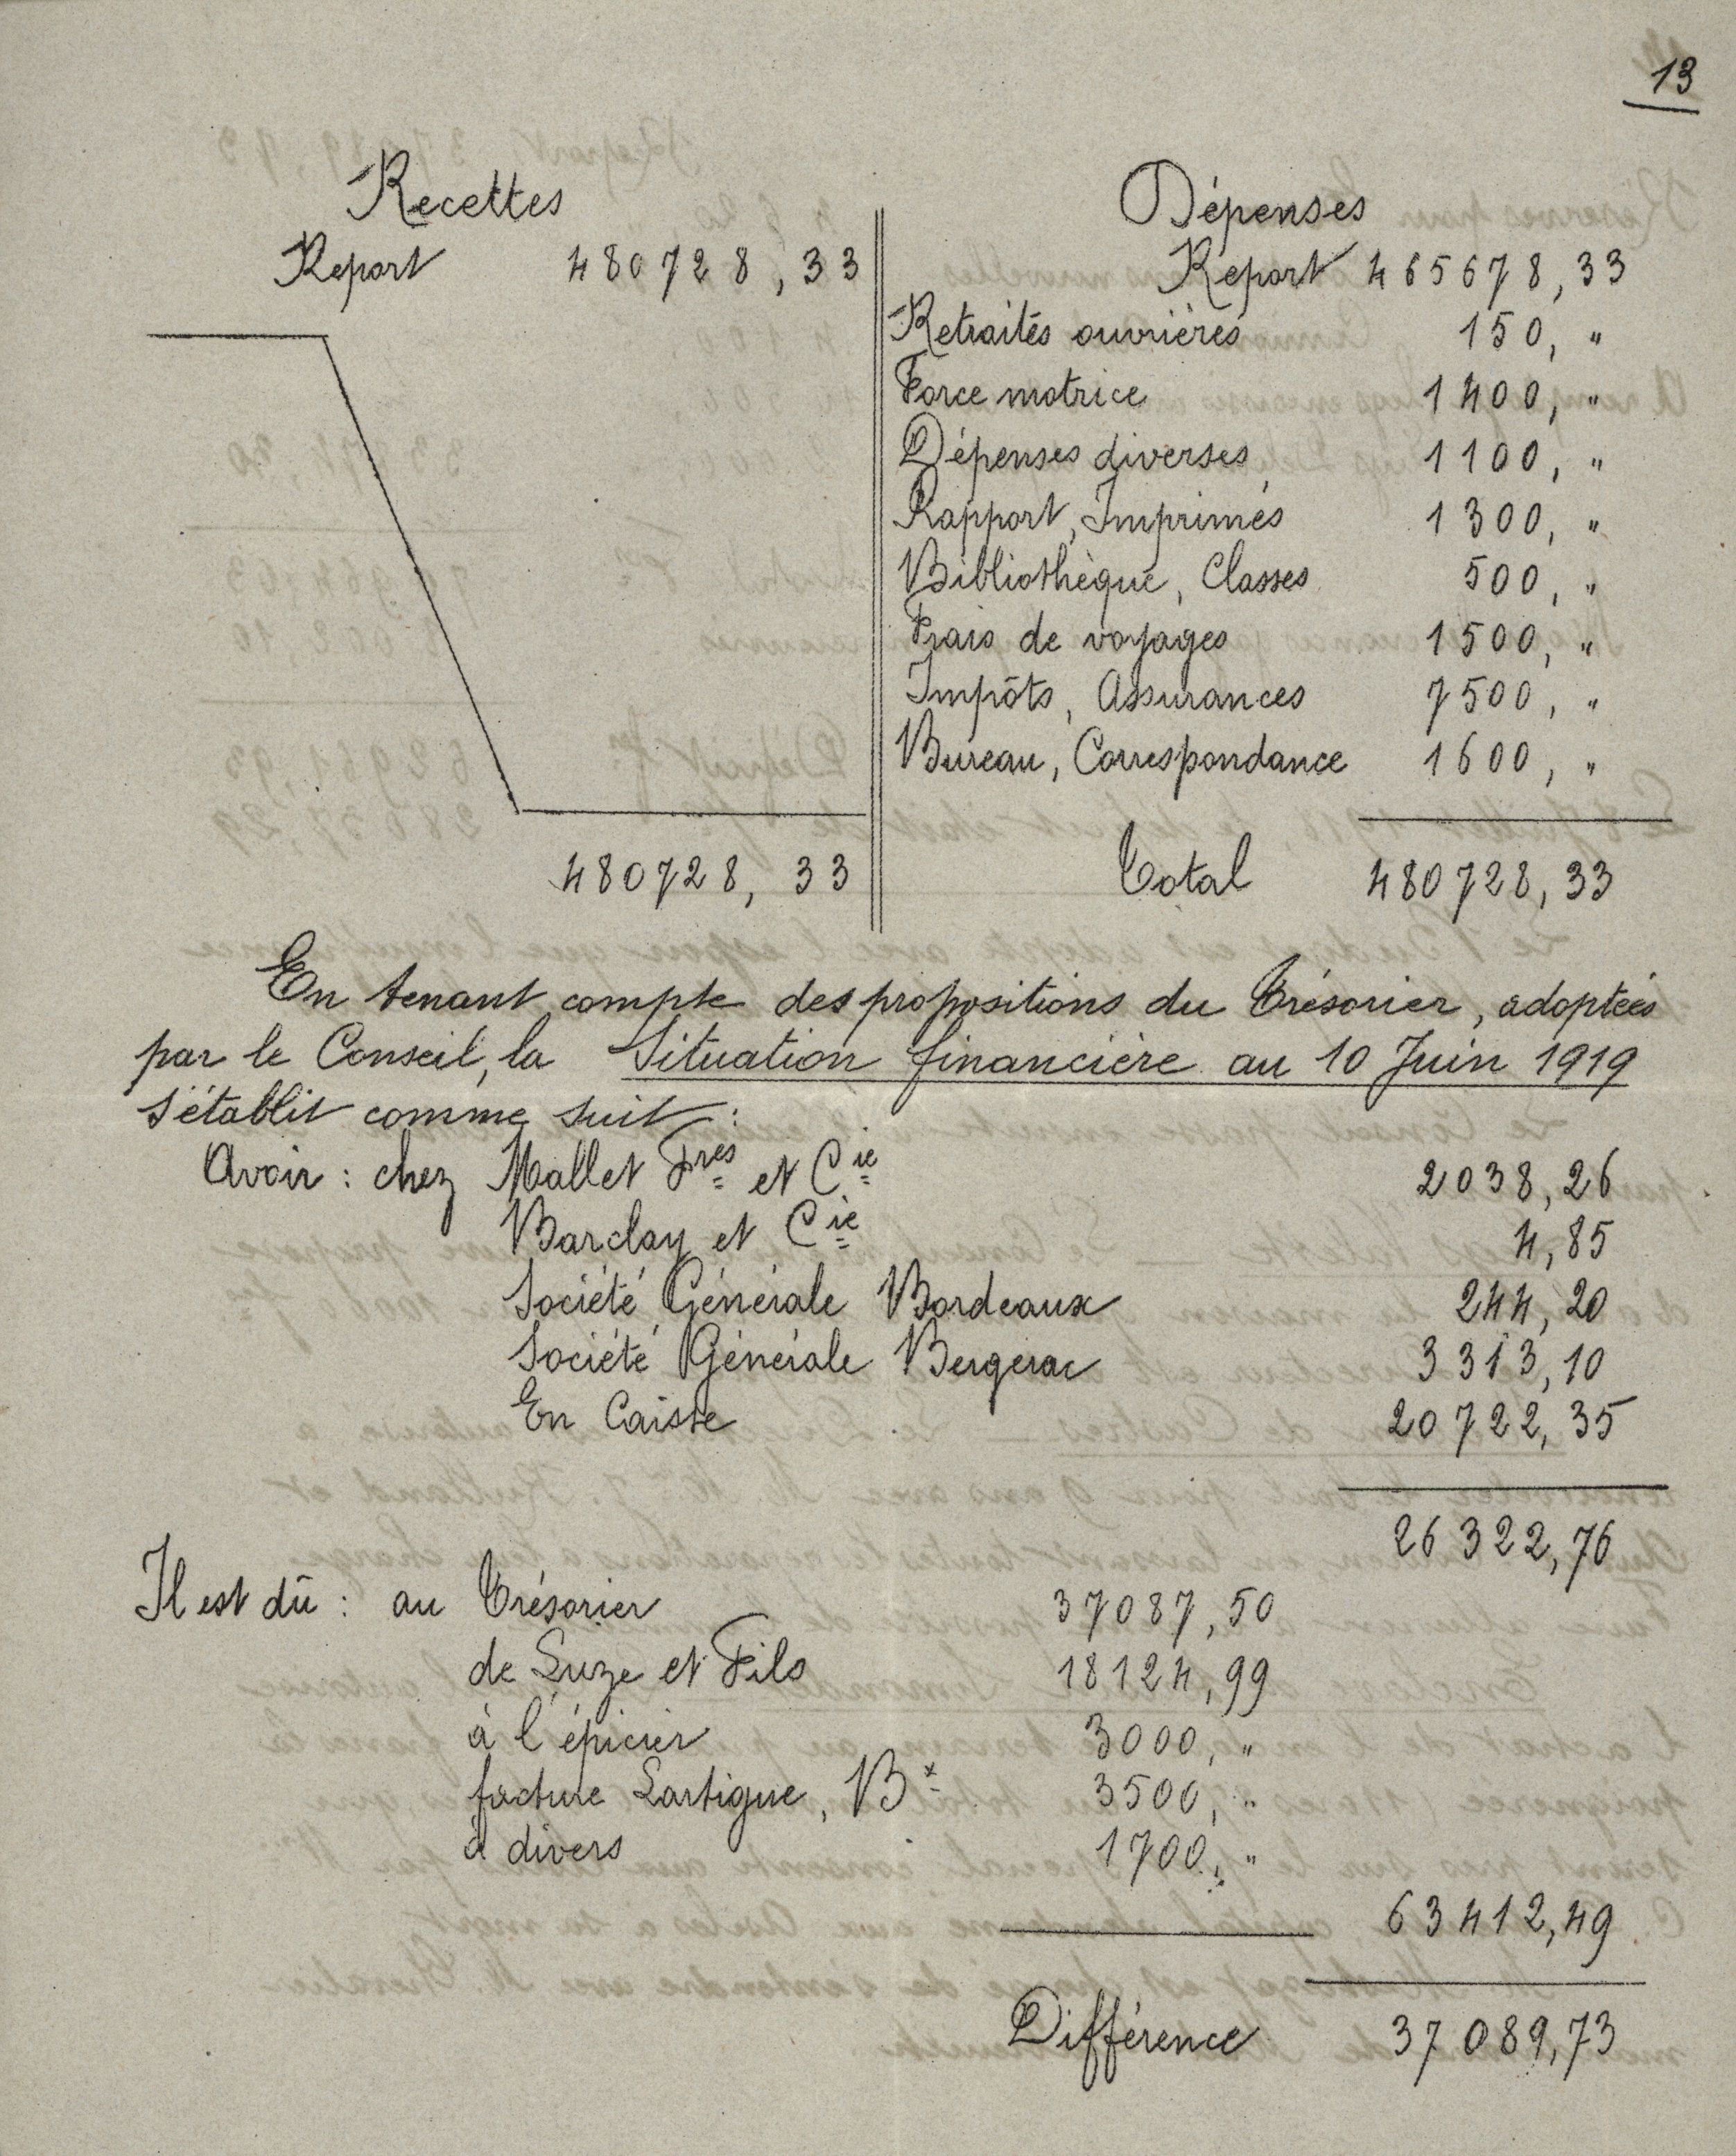 13
Recettes
Report 480728,33
480728,33
Dépenses
Report 465678,33
Retraités ouvrières 150, "
Force motrice 1400, "
Dépenses diverses 1100, "
Rapport, Imprimés 1300, "
Bibliothèque, Classes 500, "
Frais de voyages 1500, "
Impôts, Assurances 7500, "
Bureau, Correspondance 1600, "
Total 480728,33
En tenant compte des propositions du Trésorier, adoptées
par le Conseil, la Situation financière au 10 Juin 1919
s'établit comme suit :
Avoir : chez Mallet Fres et Cie 2038,26
Barclay et Cie 4,85
Société Générale Bordeaux 244,20
Société Générale Bergerac 3313,10
En Caisse 20722,35
26322,76
Il est dû : au Trésorier 37087,50
de Luze et Fils 18124,99
à l'épicier 3000, "
facture Lartigue, Bx 3500, "
à divers 1700, "
63412,49
Différence 37089,73